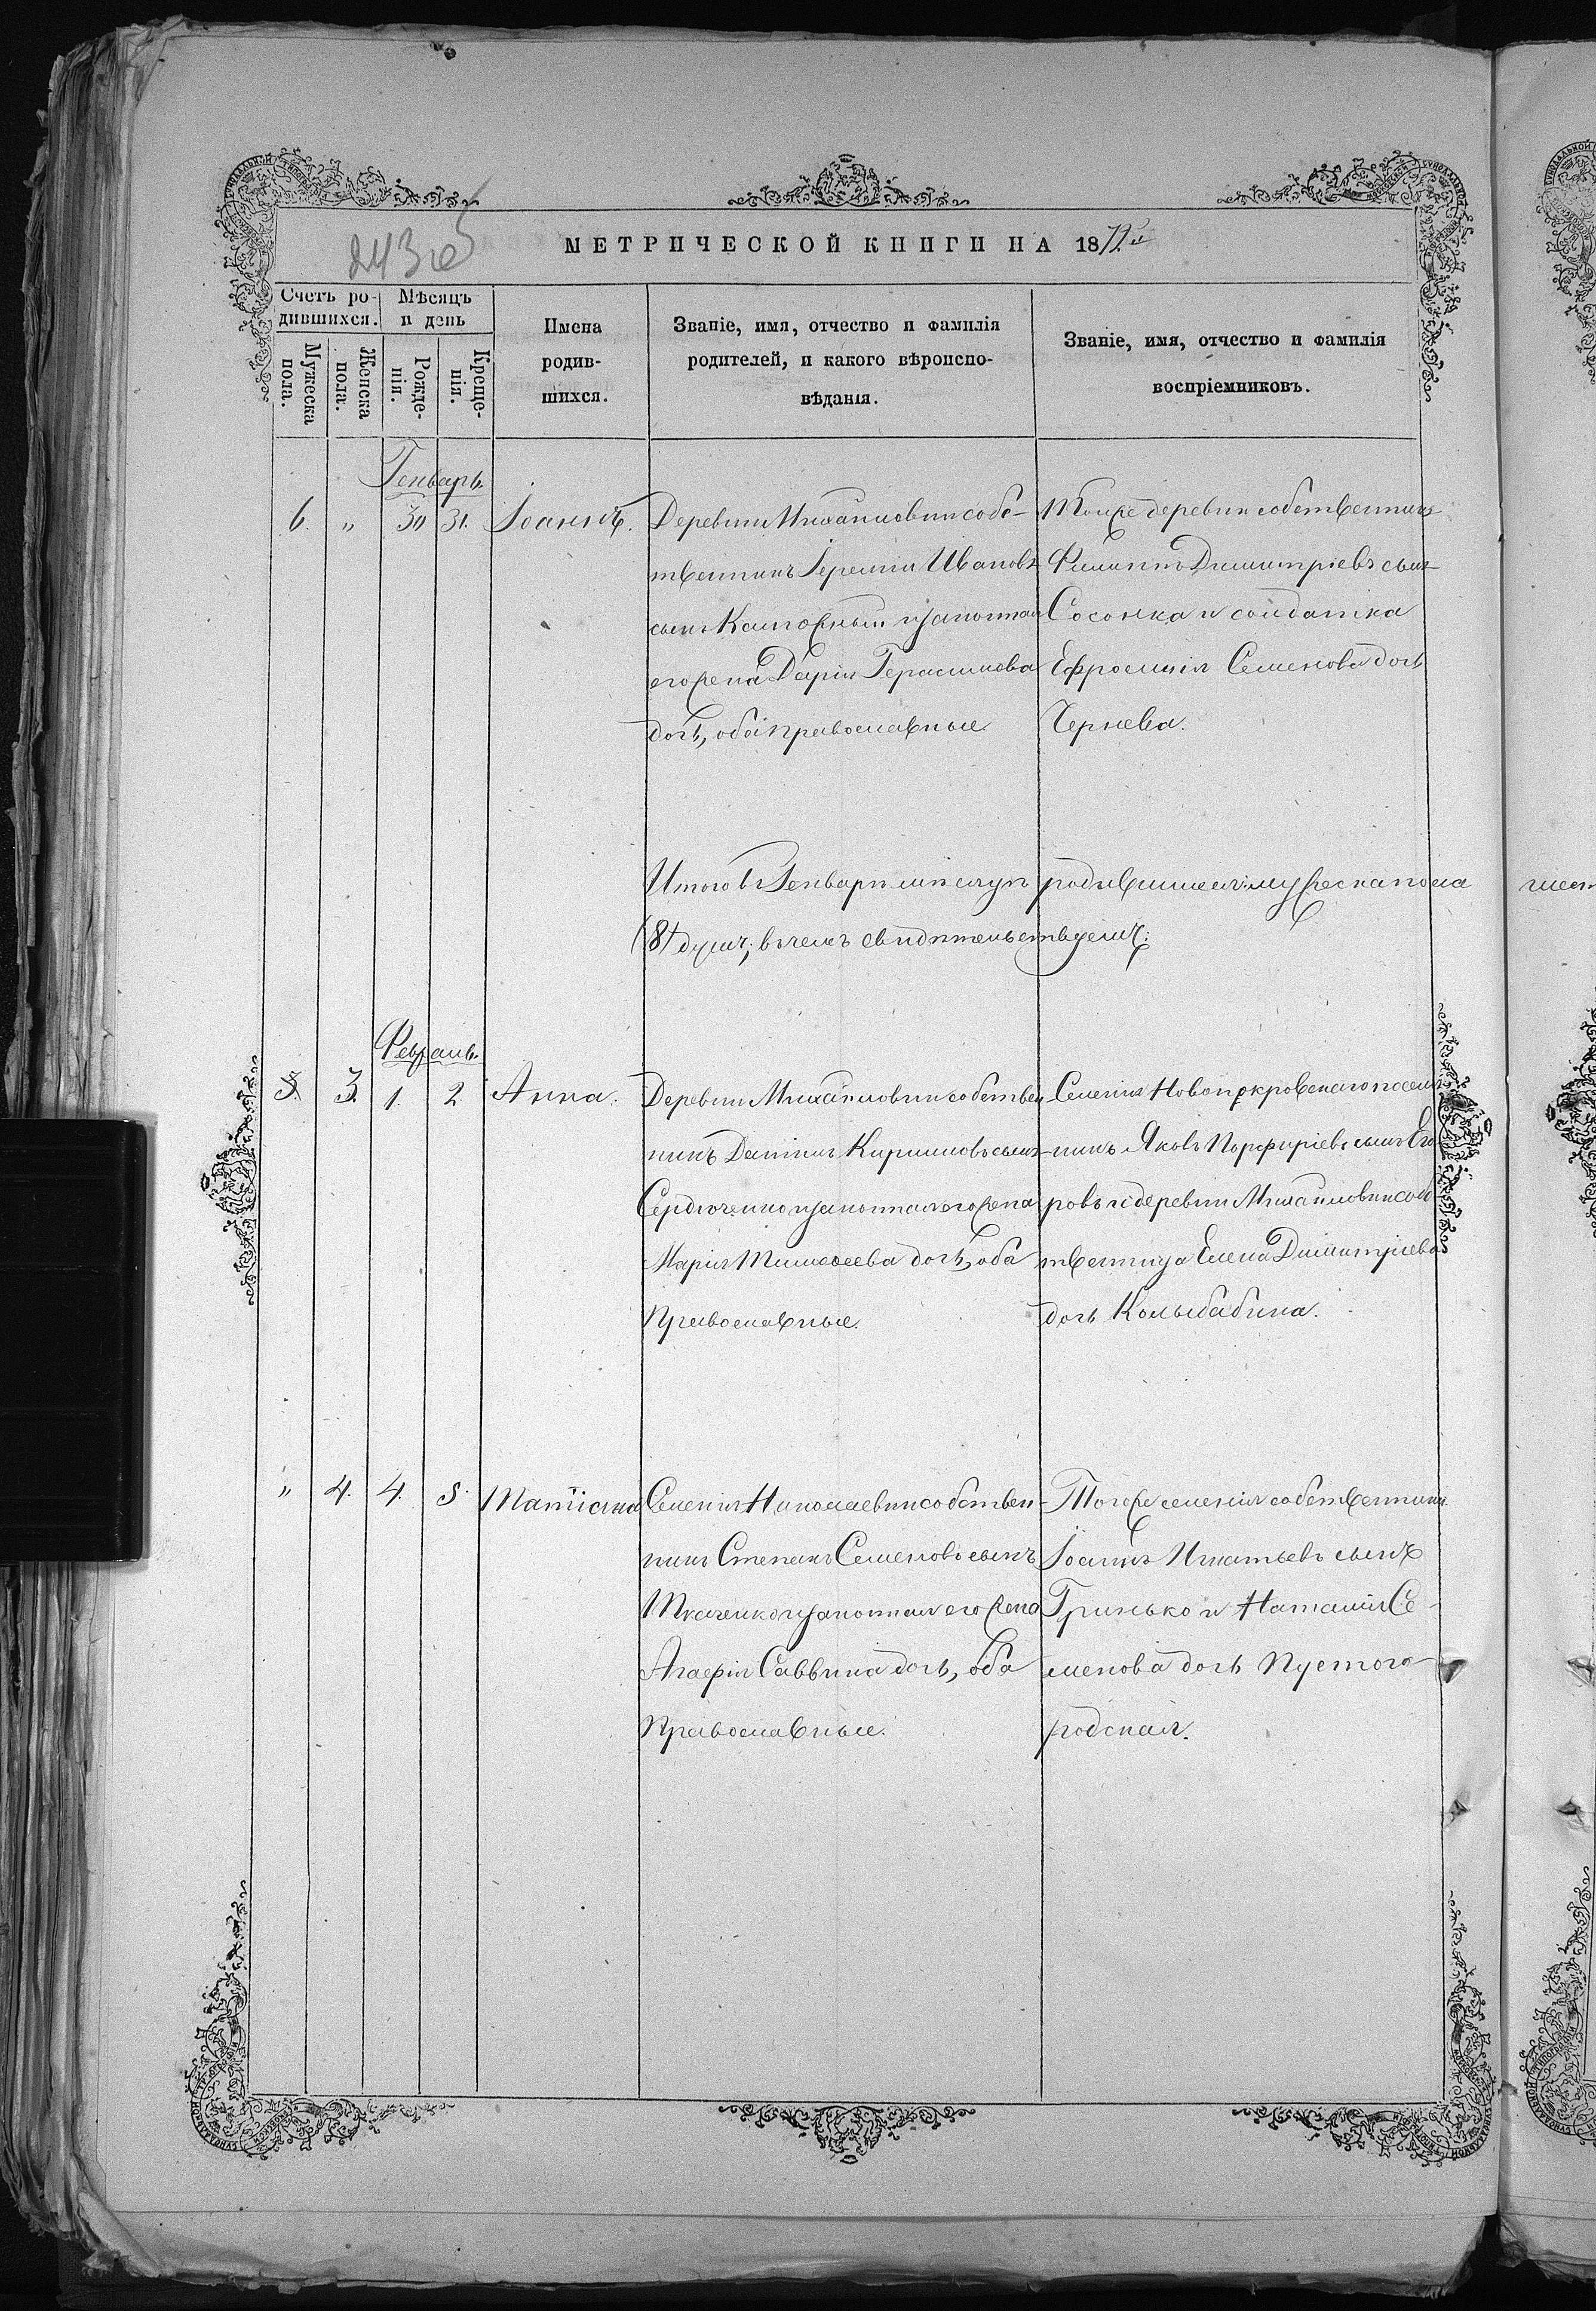 243 об
МЕТРИЧЕСКОЙ КНИГИ НА 18
Счетъ ро-
дившихся.
Мѣсяцъ
и день
Мужеска
пола.
Женска
пола.
Рожде-
нія.
Креще-
нія.
Имена
родив-
шихся.
Званіе, имя, отчество и фамилія
родителей, и какого вѣроиспо-
вѣданія.
Званіе, имя, отчество и фамилія
воспріемниковъ.
Генварь.
6. „ 30 31. Іоаннъ.
Деревни Михайловки собс-
твенникъ Іеремій Ивановъ
сынъ и законная
его жена Дарія Герасимова
дочь, оба православные
Той же деревни собственникъ
Филиппъ Димитріевъ сынъ
Сосонка и солдатка
Ефросинія Семенова дочь
Чернева.
Итого въ Генварѣ мѣсяцѣ родившихся: мужеска пола
(8) душъ; въ чемъ свидѣтельствуемъ:
Февраль.
3. 1. 2 Анна.
Деревни Михайловки собствен-
никъ Кириловъ сынъ
Сердюченко и законная его жена
Марія Тимоѳеева дочь, оба
Православные.
Селенія Новопокровскаго поселя-
нинъ Яковъ Порфиріевъ сынъ Его-
ровъ и деревни Михайловки собс-
твенница Елена Димитріева
дочь Колыбабина.
„ 4. 4. 5. Татіана
Селенія Николаевки собствен-
никъ Степанъ Семеновъ сынъ
Ткаченко и законная его жена
Агафія Саввина дочь, оба
Православные.
Того же селенія собственникъ
Іоаннъ Игнатьевъ сынъ
Гринько и Наталія Се-
менова дочь Пустого-
родская.